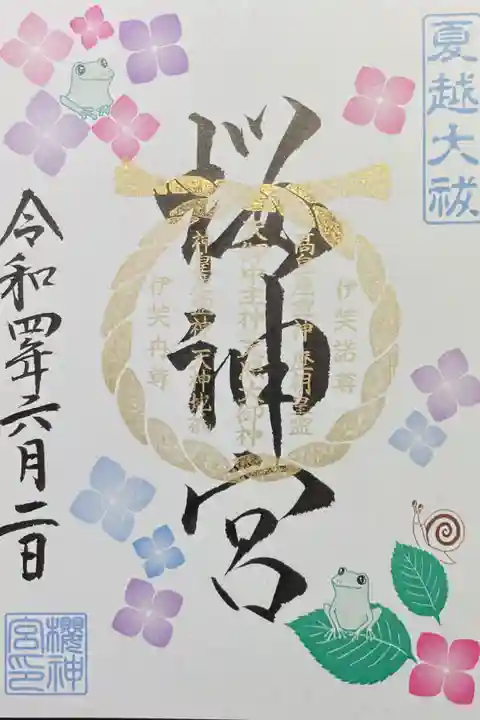 夏越大祓
桜神宮
伊奘諾尊
伊奘冉尊
令和四年六月二日
櫻神
宮印